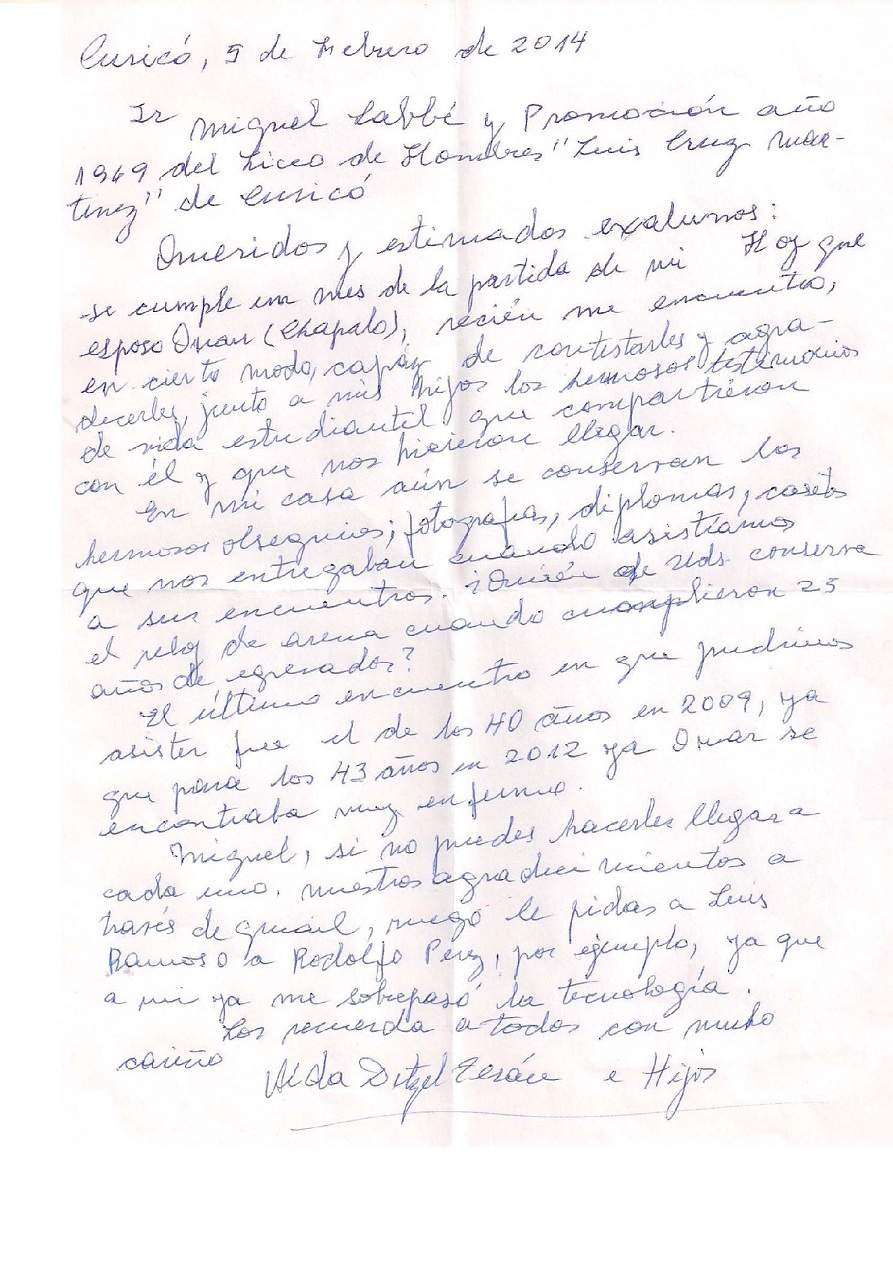 Curicó, 5 de Febrero de 2014
Sr Miguel Labbé y Promoción año
1969 del Liceo de Hombres "Luis Cruz Mar-
tinez" de Curicó
Queridos y estimados exalumnos:
Hoy que
se cumple un mes de la partida de mi
esposo Omar (Chapalo), recién me encuentro,
en cierto modo, capáz de contestarles y agra-
decerles, junto a mis hijos los hermosos testimonios
de vida estudiantil que compartieron
con él y que nos hicieron llegar.
En mi casa aún se conservan los
hermosos obsequios; fotografias, diplomas, casets
que nos entregaban cuando asistiámos
a sus encuentros. ¿Quién de Uds. conserva
el reloj de arena cuando cumplieron 25
años de egresados?
El último encuentro en que pudimos
asistir fue el de los 40 años en 2009, ya
que para los 43 años en 2012 ya Omar se
encontraba muy enfermo.
Miguel, si no puedes hacerles llegar a
cada uno. nuestros agradecimientos a
través de gmail, ruego le pidas a Luis
Ramos o a Rodolfo Pérez, por ejemplo, ya que
a mi ya me sobrepasó la tecnología.
Los recuerda a todos con mucho
cariño
Aída Ditzel e Hijos